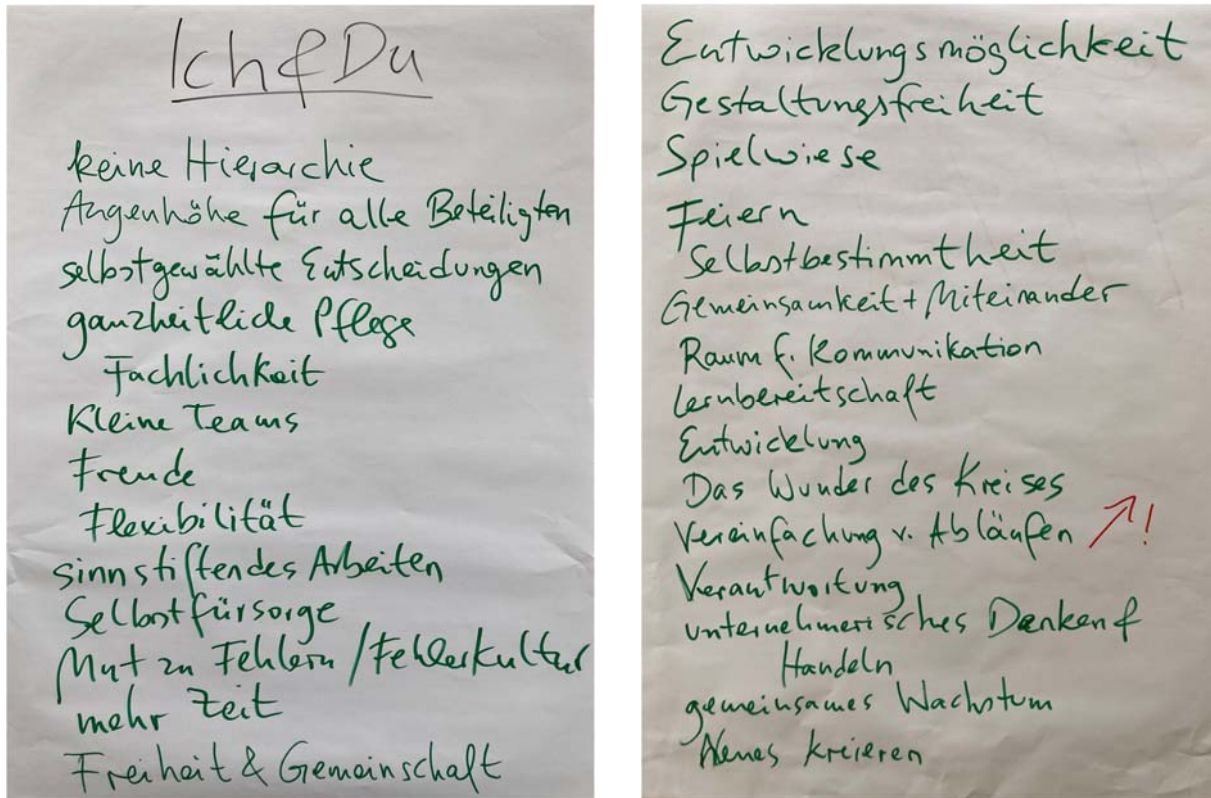 Ich & Du
keine Hierarchie
Augenhöhe für alle Beteiligten
selbstgewählte Entscheidungen
ganzheitliche Pflege
Fachlichkeit
Kleine Teams
Freude
Flexibilität
sinnstiftendes Arbeiten
Selbstfürsorge
Mut zu Fehlern / Fehlerkultur
mehr Zeit
Freiheit & Gemeinschaft
Entwicklungsmöglichkeit
Gestaltungsfreiheit
Spielwiese
Feiern
Selbstbestimmtheit
Gemeinsamkeit + Miteinander
Raum f. Kommunikation
Lernbereitschaft
Entwicklung
Das Wunder des Kreises
Vereinfachung v. Abläufen !
Verantwortung
unternehmerisches Denken &
Handeln
gemeinsames Wachstum
Neues kreieren